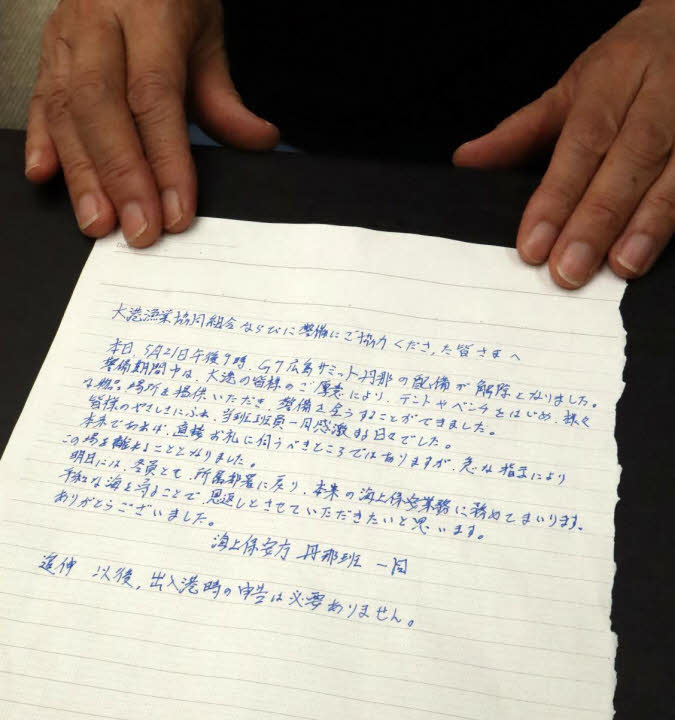 Date
大港漁業協同組合ならびに警備にご協力くださった皆さまへ
本日、5月21日午後9時、G7広島サミット丹那の配備が解除となりました。
警備期間中は、大港の皆様のご厚意により、テントやベンチをはじめ、様々
な物品、場所を提供いただき、警備を全うすることができました。
皆様のやさしさにふれ、当班班員一同感激する日々でした。
本来であれば、直接お礼に伺うべきところではありますが、急な指示により
この場を離れることとなりました。
明日には、各員とも、所属部署に戻り、本来の海上保安業務に務めてまいります。
平和な海を守ることで、恩返しとさせていただきたいと思います。
ありがとうございました。
海上保安庁 丹那班 一同
追伸 以後、出入港時の申告は必要ありません。